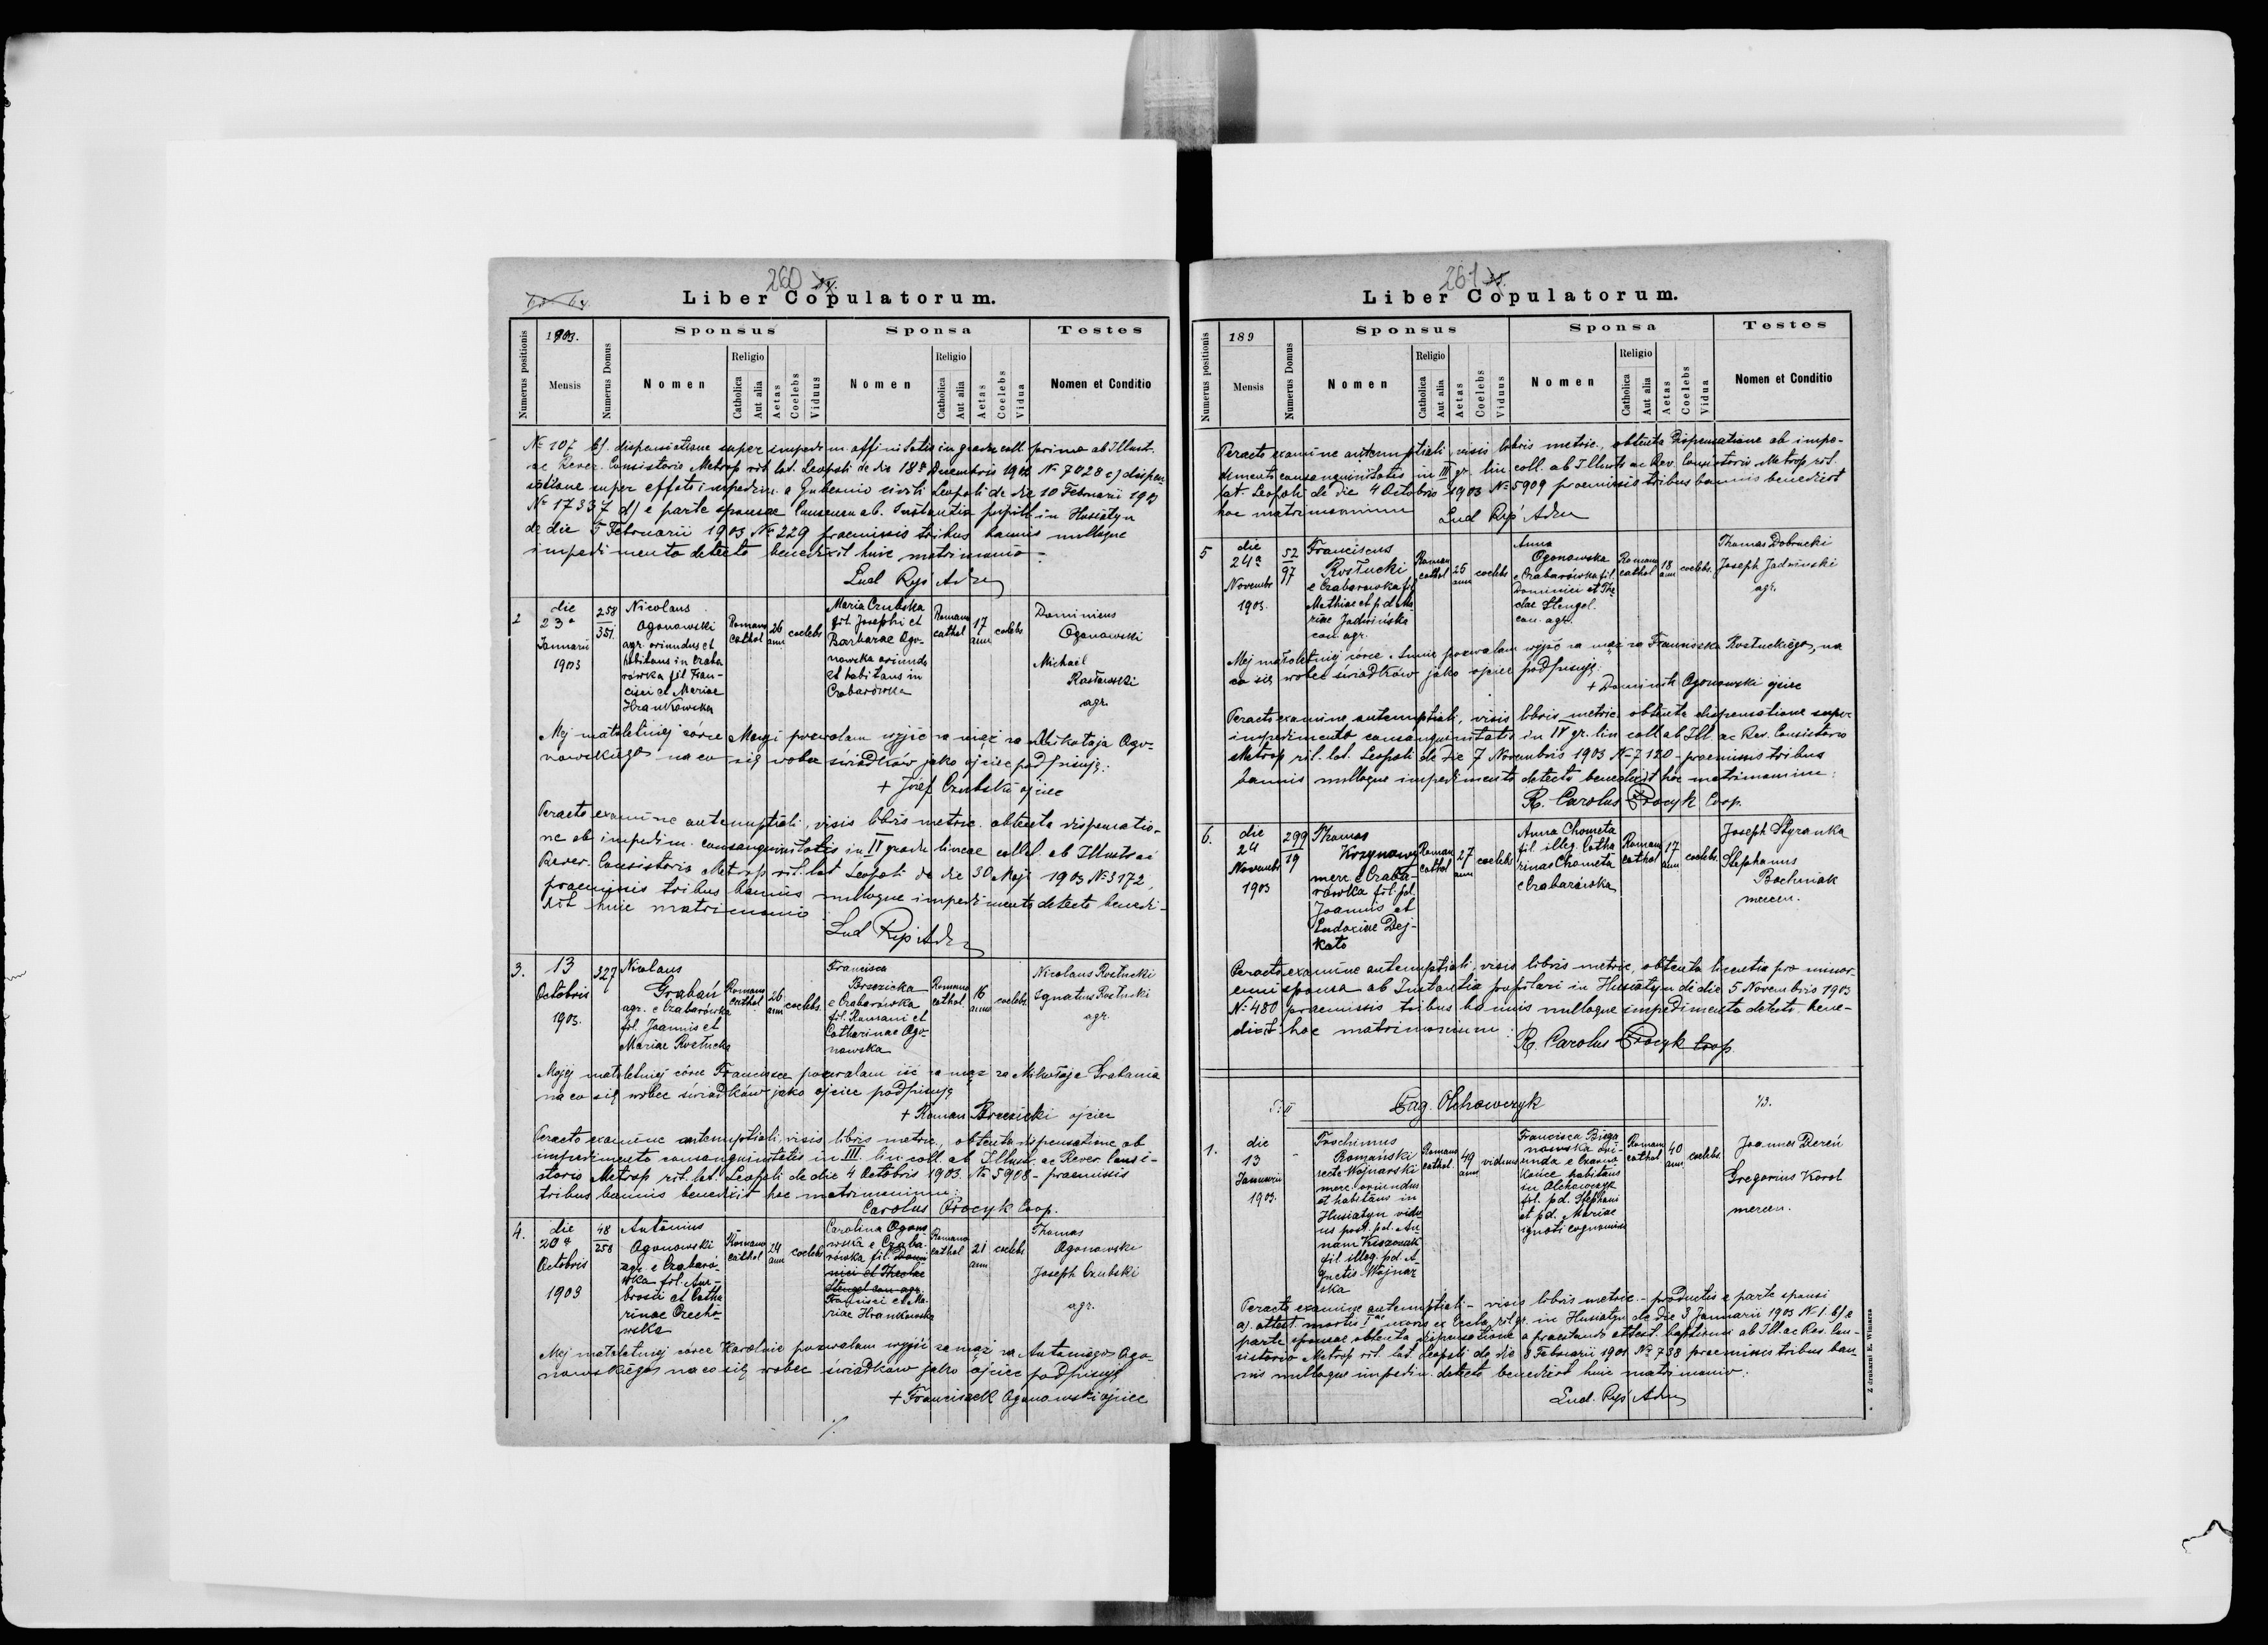 260
Liber Copulatorum.
Numerus positionis
1903.
Mensis
Numerus Domus
Sponsus
Nomen
Religio
Catholica
Aut alia
Aetas
Coelebs
Viduus
Sponsa
Nomen
Religio
Catholica
Aut alia
Aetas
Coelebs
Vidua
Testes
Nomen et Conditio
No 107 b/. dispensatione super impedim affinitatis in gradu coll. primo ab Illust.
ac Rever. Consistorio Metrop rit. lat. Leopoli de die 18 Decembris 1902 No 7028 c) dispen
satione super effato impedim. a Gubernio civili Leopoli de die 10 Februarii 1903
No 17337 d) e parte sponsae ab. Instantia pupill in Husiatyn
de die 5 Februarii 1903 No 229 praemissis tribus bannis nulloque
impedimento detecto benedixit huic matrimonio
Lud Ryś Adm
2
die
23a
Januarii
1903
258
351
Nicolaus
Ogonowski
agr. oriundus et
habitans in Czaba
rówka fil Fran-
cisci et Mariae
Hrankowska
Romano
cathol
26
ann
coelebs
Maria Czubska
fil. Josephi et
Barbarae Ogo-
nowska oriunda
et habitans in
Czabarówka
Romano
cathol
17
ann
coelebs
Dominicus
Ogonowski
Michael
agr.
Mej małoletniej córce Maryi pozwalam wyjść za mąż za Mikołaja Ogo-
nowskiego na co się wobec świadków jako ojciec podpisuję:
+ Józef Czubski ojciec
Peracto examine antenuptiali, visis libris metric. obtenta dispensatio-
ne ab impedim. consanguinitatis in II gradu lineae collat. ab Illustr ac
Rever. Consistorio Metrop rit. lat Leopoli de die 30 Maji 1903 No 3172,
praemissis tribus bannis nulloque impedimento detecto benedi-
xit huic matrimonio
Lud Ryś Adm
3.
13
Octobris
1903.
327
Nicolaus
Grabań
agr. e Czabarówka
fil. Joannis et
Mariae Rostucka
Romano
cathol.
26
ann
coelebs.
Francisca
Brzezicka
e Czabarówka
fil. Romani et
Catharinae Ogo-
nowska
Romano
cathol.
16
ann
coelebs
Nicolaus Rostucki
Ignatius Rostucki
agr.
Mojej małoletniej córce Francisce pozwalam iść za mąż za Mikołaja Grabania
na co się wobec świadków jako ojciec podpisuję
+ Roman Brzezicki ojciec
Peracto examine antenuptiali, visis libris metric., obtenta dispensatione ab
impedimento consanguinitatis in III. lin coll. ab Illust. ac Rever. Consi-
storio Metrop rit. lat. Leopoli de die 4 Octobris 1903. No 5908 - praemissis
tribus bannis benedixit hoc matrimonium:
Carolus Procyk Coop.
4.
die
20a
Octobris
1903
48
258
Antonius
Ogonowski
agr. e Czabaró-
wka fil. Am-
brosii et Catha
rinae Orecho-
wska
Romano
cathol
24
ann
coelebs
Carolina Ogono
wska e Czaba-
rówka fil. Domi
nici et Theclae
Stengel con agr.
Francisci et Ma-
riae Hrankowska
Romano
cathol
21
ann
coelebs
Thomas
Ogonowski
Joseph Czubski
agr.
Mej małoletniej córce Karolinie pozwalam wyjść za mąż za Antoniego Ogo-
nowskiego na co się wobec świadków jako ojciec podpisuję
+ Franciszek Ogonowski ojciec
./.
261
Liber Copulatorum.
Numerus positionis
189
Mensis
Numerus Domus
Sponsus
Nomen
Religio
Catholica
Aut alia
Aetas
Coelebs
Viduus
Sponsa
Nomen
Religio
Catholica
Aut alia
Aetas
Coelebs
Vidua
Testes
Nomen et Conditio
Peracto examine antenuptiali, visis libris metric., obtenta dispensatione ab impe-
dimento consanguinitatis in III gr. lin. coll. ab Illustr ac Rev. Consistorio Metrop rit.
lat. Leopoli de die 4 Octobris 1903 No 5909 praemissis tribus bannis benedixit
hoc matrimonium
Lud Ryś Adm
5
die
24a
Novembr
1903.
52
97
Franciscus
Rostucki
e Czabarówka fil
Mathiae et p.d. Ma
riae Jadwińska
con. agr.
Roman
cathol
25
ann
coelebs
Anna
Ogonowska
e Czabarówka fil.
Dominici et The
clae Stengel.
con. agr.
Romano
cathol
18
ann
coelebs.
Thomas Dobrucki
Joseph Jadwinski
agr.
Mej małoletniej córce Annie pozwalam wyjść za mąż za Franciszka Rostuckiego, na
co się wobec świadków jako ojciec podpisuję:
+ Dominik Ogonowski ojciec
Peracto examine antenuptiali, visis libris metric. obtenta dispensatione super
impedimento consanguinitatis in IV gr. lin coll. ab Ill. ac Rev. Consistorio
Metrop rit. lat. Leopoli de die 7 Novembris 1903 No 7120 - praemissis tribus
bannis nulloque impedimento detecto benedixit hoc matrimonium:
R. Carolus Procyk Coop.
6.
die
24
Novembr
1903
299
19
Thomas
merc e Czaba-
rówka fil. pd.
Joannis et
Eudoxiae Dej-
kato
Roman
cathol
27
ann
coelebs
Anna Chometa
fil illeg. Catha
rinae Chometa
e Czabarówka
Roman
cathol
17
ann
coelebs.
Joseph Styranka
Stephanus
Bochniak
mercen.
Peracto examine antenuptiali, visis libris metric, obtenta licentia pro minor-
enni sponsa ab Instantia pupilari in Husiatyn de die 5 Novembris 1903
No 480 praemissis tribus bannis nulloque impedimento detecto bene-
dixit hoc matrimonium:
R. Carolus Procyk Coop.
Pag. Olchowczyk
1/3.
1.
die
13
Januarii
1903.
-
Joachimus
Romański
recte Wojnarski
merc. oriundus
et habitans in
Husiatyn vidu
us post. p.d. An
nam Kiszozak
fil. illeg. pd. A
gnetis Wojnar
ska
Romano
cathol.
49
ann
viduus
Francisca Biega
nowska ori-
unda e Czarno
końce habitans
in Olchowczyk
fil. pd. Stephani
et pd. Mariae
ignoti cognominis
Romano
cathol
40
ann
coelebs
Joannes Dereń
Gregorius Korol
mercen.
Peracto examine antenuptiali - visis libris metric. - productis e parte sponsi
a). attest. mortis Iae uxoris ex Eccla rit. gr. in Husiatyn de die 3 Januarii 1903 No 1. b/. e
parte sponsae obtenta dispensatione a praestando attest. baptismi ab Ill. ac Rev. Con-
sistorio Metrop rit. lat. Leopoli de die 8 Februarii 1901 No 738 praemissis tribus ban-
nis nulloque impedim. detecto benedixit huic matrimonio:
Lud. Ryś Adm
Z drukarni E. Winiarza